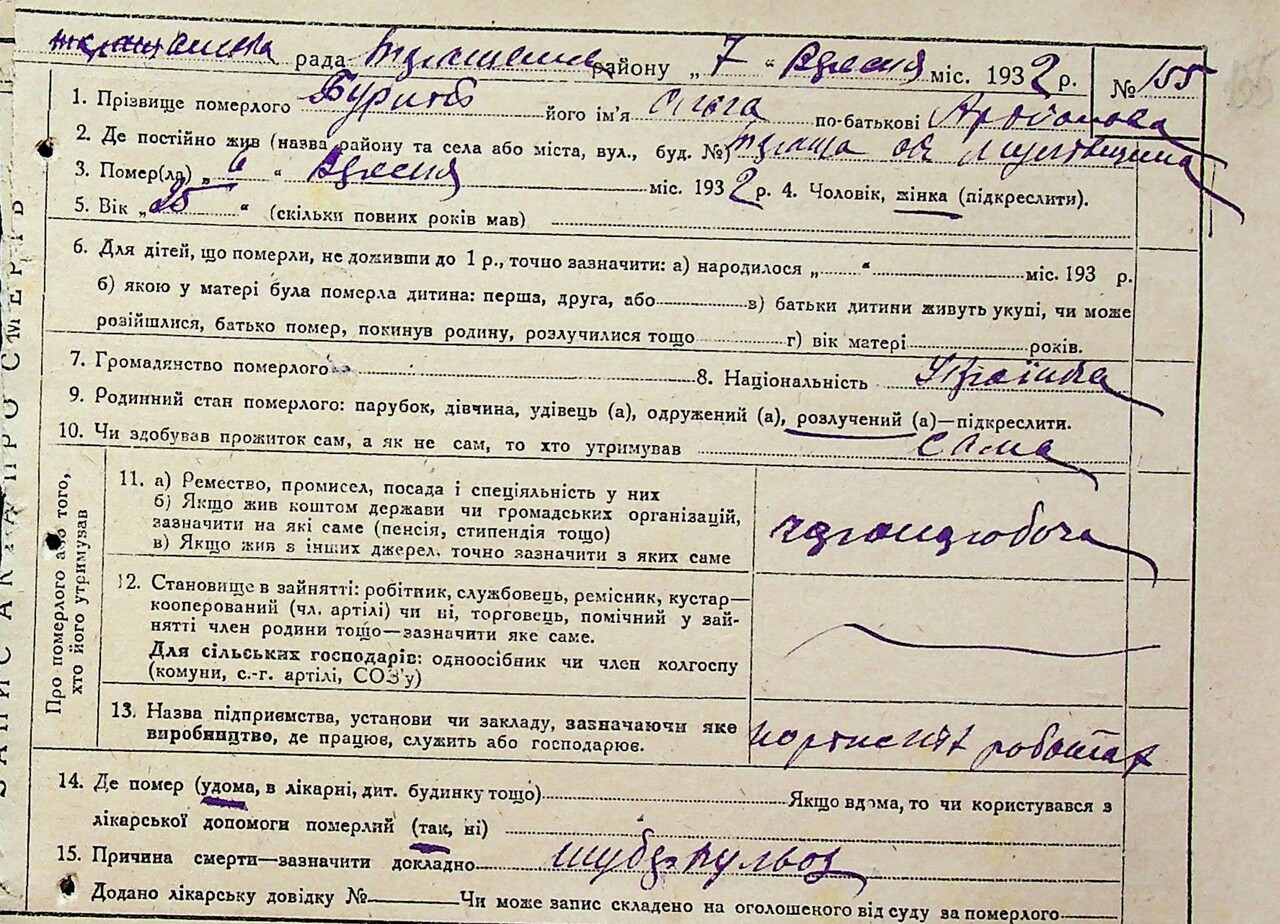 рада району „ 7 “ Вересня міс. 1932 р. № 155
1. Прізвище померлого його ім'я Ольга по-батькові
2. Де постійно жив (назва району та села або міста, вул., буд. №)
3. Помер(ла) „ 6 “ Вересня міс. 1932 р. 4. Чоловік, жінка (підкреслити).
5. Вік „ 25 “ (скільки повних років мав)
6. Для дітей, що померли, не доживши до 1 р., точно зазначити: а) народилося „ “ міс. 193 р.
б) якою у матері була померла дитина: перша, друга, або в) батьки дитини живуть укупі, чи може
розійшлися, батько помер, покинув родину, розлучилися тощо г) вік матері років.
7. Громадянство померлого 8. Національність Українка
9. Родинний стан померлого: парубок, дівчина, удівець (а), одружений (а), розлучений (а)—підкреслити.
10. Чи здобував прожиток сам, а як не сам, то хто утримував сама
ЗАПИС АКТА ПРО СМЕРТЬ
Про померлого або того,
хто його утримував
11. а) Ремество, промисел, посада і спеціяльність у них
б) Якщо жив коштом держави чи громадських організацій,
зазначити на які саме (пенсія, стипендія тощо)
в) Якщо жив з інших джерел, точно зазначити з яких саме
чорноробоча
12. Становище в зайнятті: робітник, службовець, ремісник, кустар—
кооперований (чл. артілі) чи ні, торговець, помічний у зай-
нятті член родини тощо—зазначити яке саме.
Для сільських господарів: одноосібник чи член колгоспу
(комуни, с.-г. артілі, СОЗ'у)
13. Назва підприємства, установи чи закладу, зазначаючи яке
виробництво, де працює, служить або господарює.
роботах
14. Де помер (удома, в лікарні, дит. будинку тощо) Якщо вдома, то чи користувався з
лікарської допомоги померлий (так, ні)
15. Причина смерти—зазначити докладно
Додано лікарську довідку № Чи може запис складено на оголошеного від суду за померлого